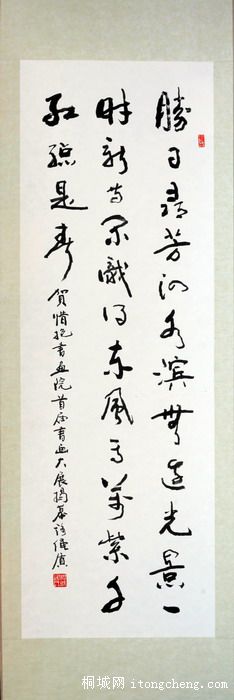 勝日尋芳泗水滨無边光景一
時新等閒識得東風面萬紫千
紅總是春
賀惜抱書画院首届書画大展揭幕
桐城网 itongcheng.com